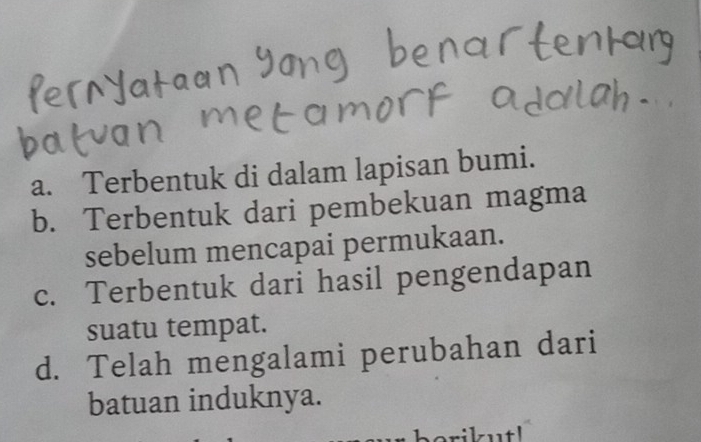 Pernyataan yang benar tentang
batuan metamorf adalah...
a. Terbentuk di dalam lapisan bumi.
b. Terbentuk dari pembekuan magma
sebelum mencapai permukaan.
c. Terbentuk dari hasil pengendapan
suatu tempat.
d. Telah mengalami perubahan dari
batuan induknya.
berikut!